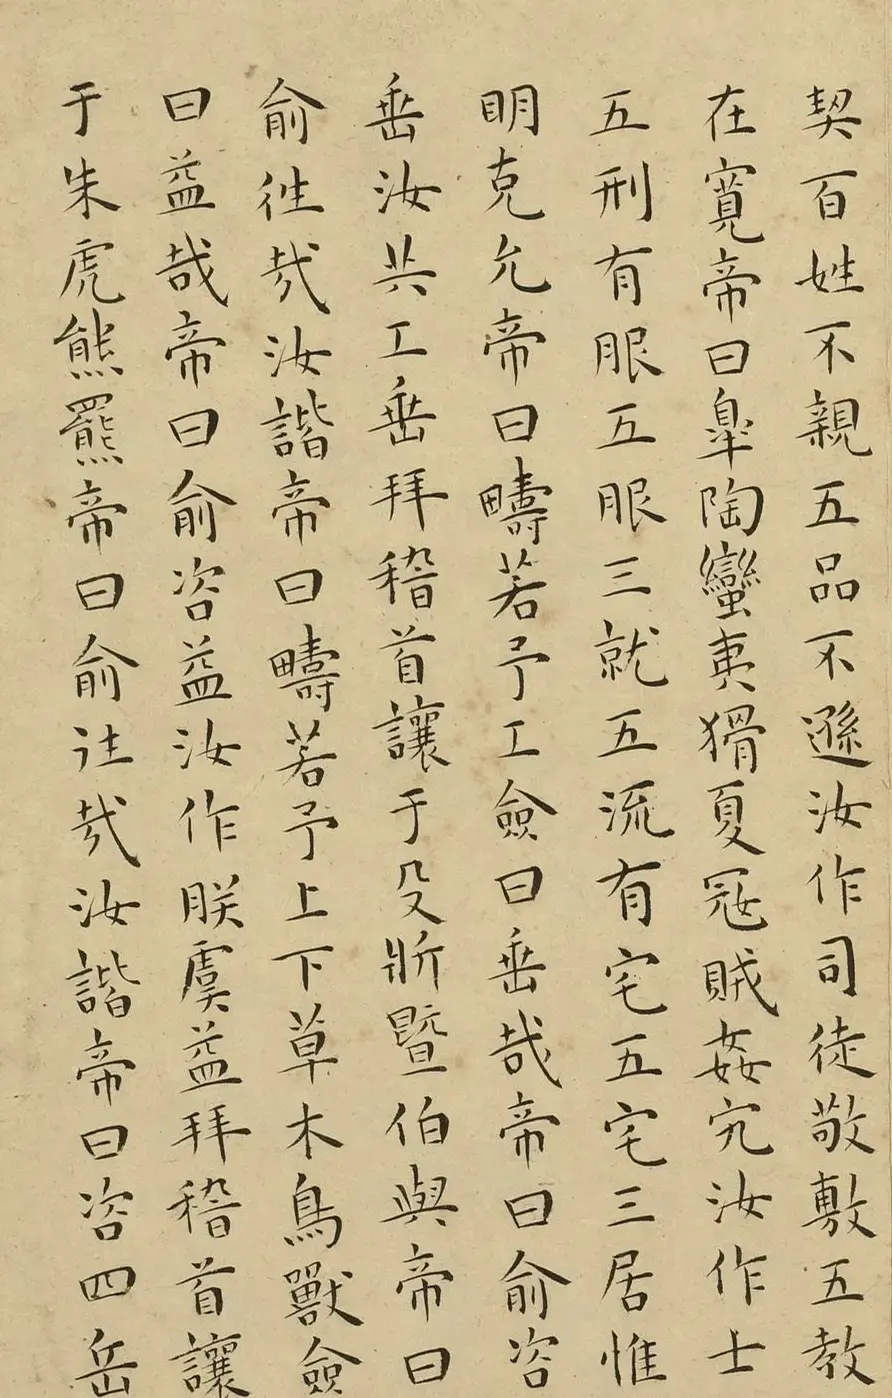 契百姓不親五品不遜汝作司徒敬敷五教
在寬帝曰臯陶蠻夷猾夏冦賊姦宄汝作士
五刑有服五服三就五流有宅五宅三居惟
明克允帝曰疇若予工僉曰垂哉帝曰俞咨
垂汝共工垂拜稽首讓于殳斨暨伯與帝曰
俞徃哉汝諧帝曰疇若予上下草木鳥獸僉
曰益哉帝曰俞咨益汝作朕虞益拜稽首讓
于朱虎熊羆帝曰俞往哉汝諧帝曰咨四岳